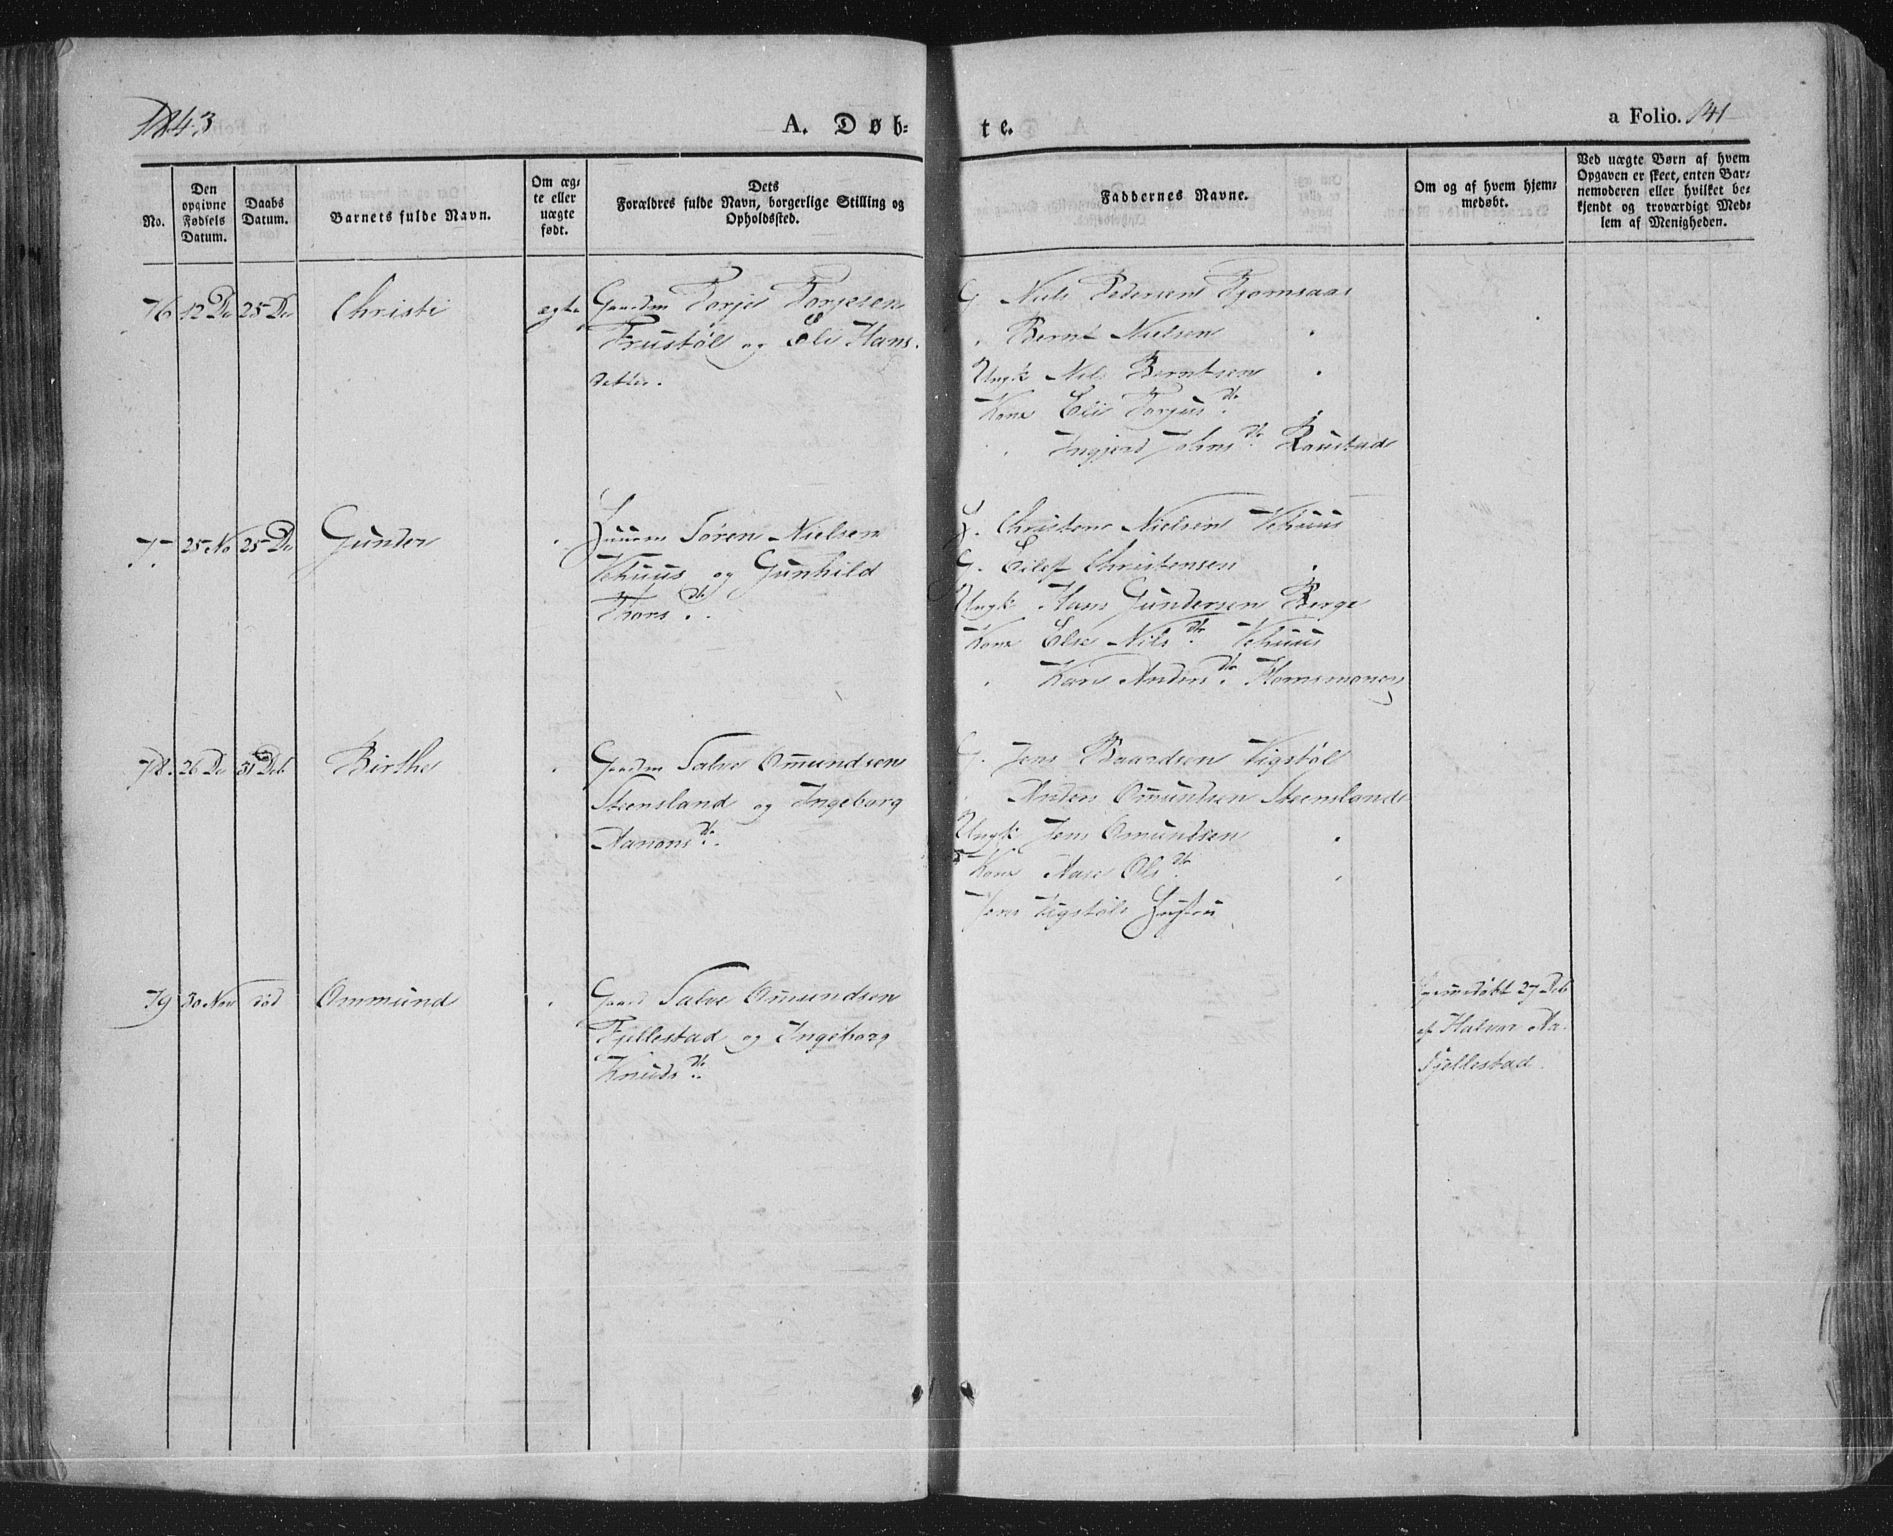 1843
A. Døb-
te.
a Folio. 141
No.
Den
opgivne
Fødsels
Datum.
Daabs
Datum.
Barnets fulde Navn.
Om æg-
te eller
uægte
født.
Dets
Forældres fulde Navn, borgerlige Stilling og
Opholdssted.
Faddernes Navne.
Om og af hvem hjem-
medøbt.
Ved uægte Børn af hvem
Opgaven er skeet, enten Bar-
nemoderen eller hvilket be-
kjendt og troværdigt Med-
lem af Menigheden.
76 12 De 25 De Christi ægte Gaardm Torje Torjesen
Frustøl og Eli Hans
datter.
G Niels Pedersen Fjomsaas
Bernt Nielsen
Ungk Nils Berntsen
Kone Eli Torjus Dr
Ingjerd Johns Dr Raustad
77 25 No 25 De Gunder Søren Nielsen
Vehuus og Gunhild
Thors Dr
Christen Nielsen Vehuus
G. Eilef Christensen
Ungk Hans Gundersen Berge
Kone Else Nils Dr Vehuus
Kari Anders Dr Homsmonen
78. 26 De 31 Deb Birthe Gaardm Salve Omundsen
Steensland og Ingeborg
Aanons Dr
G. Jens Baardsen Vigstøl
Anders Omundsen Steensland
Ungk Jens Omundsen
Kone Aase Ols Dr
Jens Vigstøls Hustru
79 30 Nov død Ommund Gaard Salve Omundsen
Fjellestad og Ingeborg
Knuds Dr
Hjemmedøbt 27 Deb
af Halvor Aa.
Fjellestad.